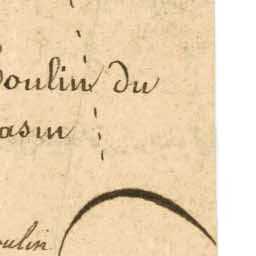 oulin du
asin
oulin